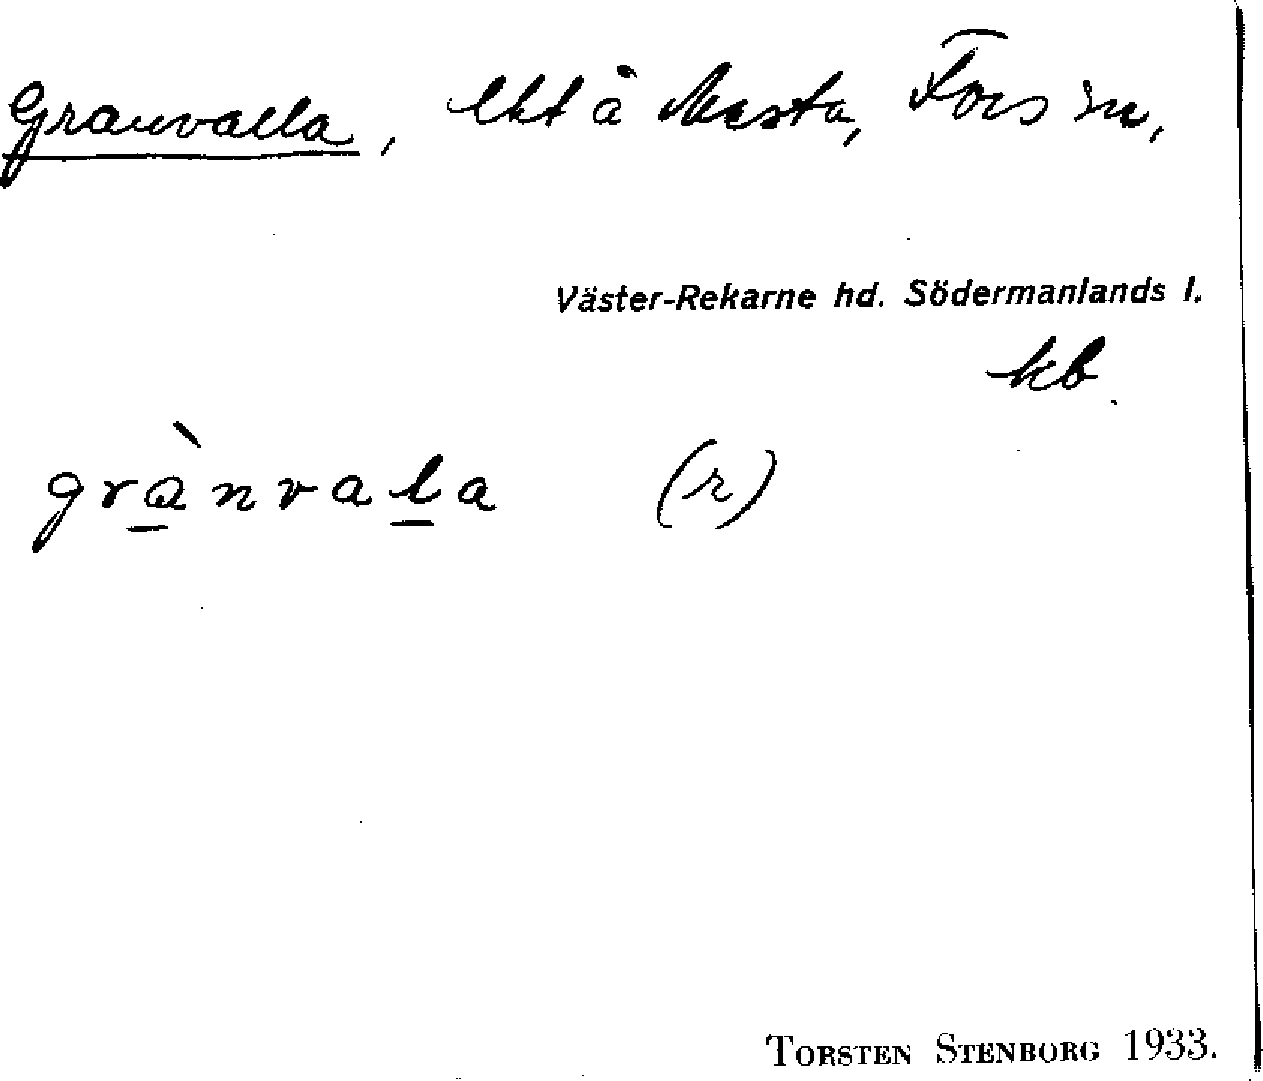 Granvalla, lht å Mesta, Fors sn,
Väster-Rekarne hd. Södermanlands l.
kb.
grànvala (r)
TORSTEN STENBORG 1933.